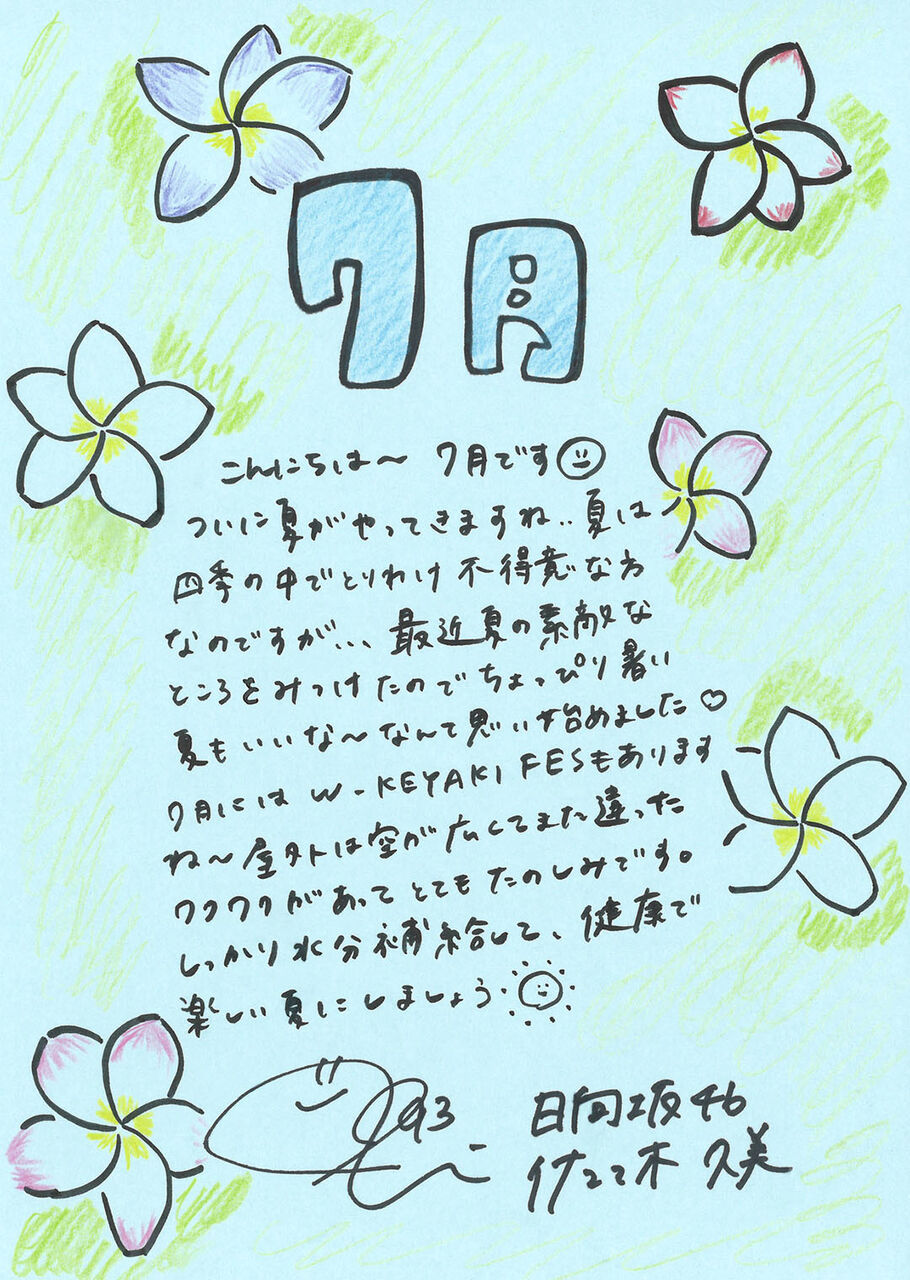 7月
こんにちは〜 7月です
ついに夏がやってきますね..夏は
四季の中でとりわけ不得意な方
なのですが、、、最近夏の素敵な
ところをみつけたのでちょっぴり暑い
夏もいいな〜なんて思い始めました♡
7月にはW-KEYAKI FESもあります
ね〜屋外は空が広くてまた違った
ワクワクがあってとてもたのしみです。
しっかり水分補給して、健康で
楽しい夏にしましょう
93
日向坂46
佐々木 久美